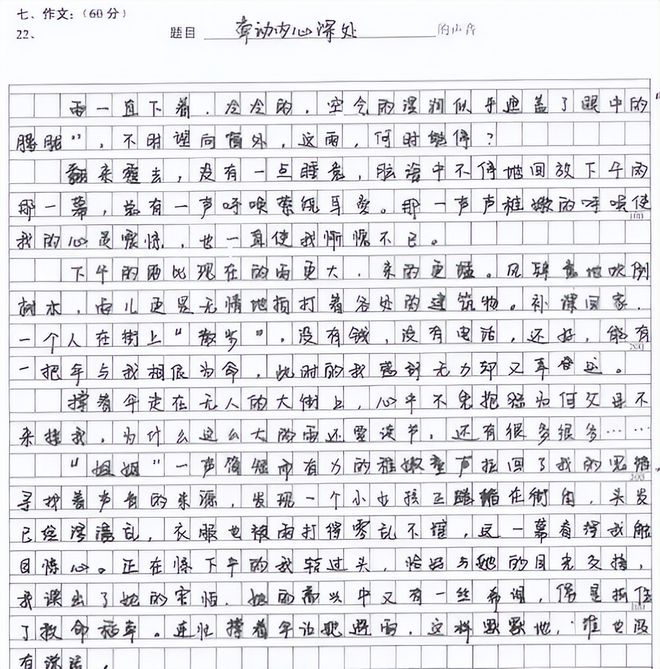 七、作文：（60分）
22、 题目 牵动内心深处 的声音
雨一直下着，冷冷的，空气的湿润似乎遮盖了眼中的"
朦胧"，不时望向窗外，这雨，何时能停？
翻来覆去，没有一点睡意，脑海中不停地回放下午雨
那一幕，总有一声呼唤萦绕耳旁。那一声声稚嫩的呼唤使
我的心灵震惊，也一直使我惭愧不已。
下午的雨比现在的雨更大，来的更猛。风肆意地吹倒
树木，雨儿更是无情地拍打着各处的建筑物。补课回家，
一个人在街上"散步"，没有钱，没有电话，还好，能有
一把伞与我相依为命，此时的我感到无力却又幸运。
撑着伞走在无人的大街上，心中不免抱怨为何父母不
来接我，为什么这么大的雨还要读书，还有很多很多……
"姐姐"一声倔强而有力的稚嫩童声拉回了我的思绪。
寻找着声音的来源，发现一个小女孩正蹲缩在街角，头发
已经湿漉乱，衣服也被雨打得零乱不堪，这一幕看得我触
目惊心。正在惊下午的我转过头，恰好与她的目光交接，
我读出了她的害怕，她的高兴中又有一丝希望，像是抓住
了救命稻草。连忙撑着伞让她避雨，这样默默地，谁也没
有说话，